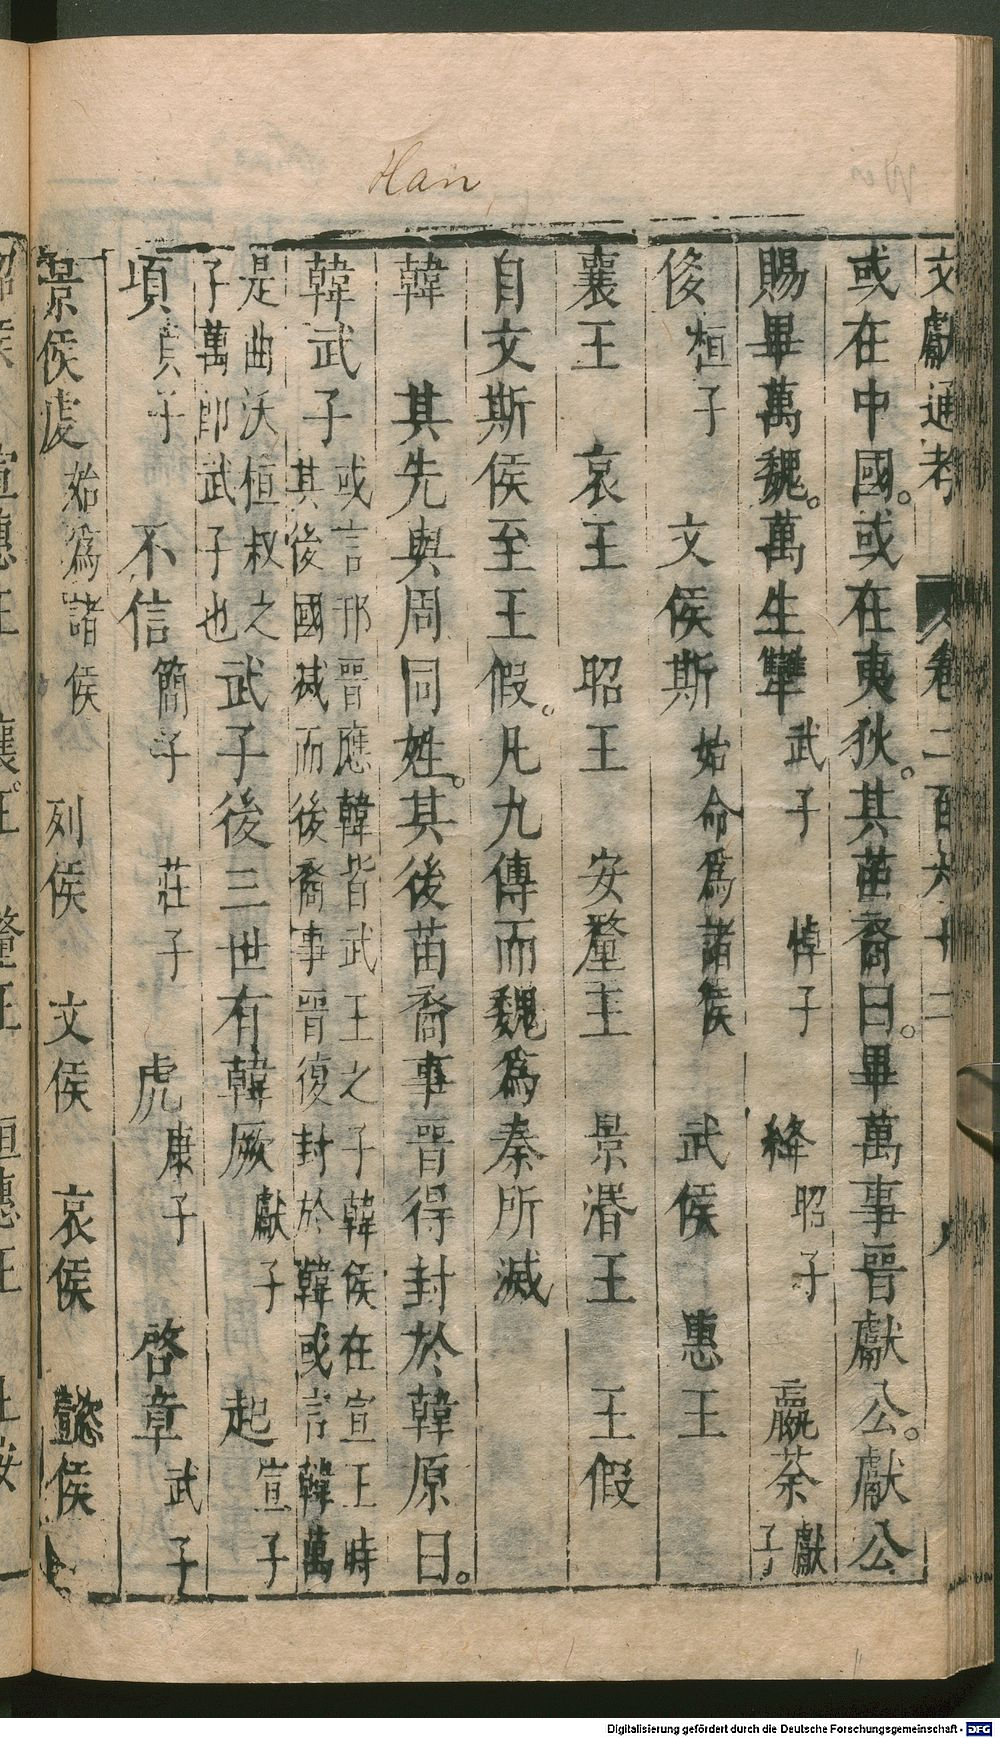 Han
文獻通考 卷二百六十二
或在中國。或在夷狄。其苗裔曰。畢萬事晉獻公。獻公
賜畢萬魏。萬生犨 武子 悼子 絳 昭子 嬴 荼 獻子
侈 桓子 文侯斯 始命爲諸侯 武侯 惠王
襄王 哀王 昭王 安釐王 景湣王 王假
自文斯侯至王假。凡九傳而魏爲秦所滅
韓 其先與周同姓。其後苗裔事晉得封於韓原曰。
韓武子 或言邢晉應韓皆武王之子韓侯在宣王時
其後國滅而後裔事晉復封於韓或言韓萬
是曲沃恒叔之
子萬卽武子也 武子後三世有韓厥 獻子 起 宣子
項 貞子 不信 簡子 莊子 虎 康子 啓章 武子
景侯虔 始爲諸侯 列侯 文侯 哀侯 懿侯
Digitalisierung gefördert durch die Deutsche Forschungsgemeinschaft - DFG